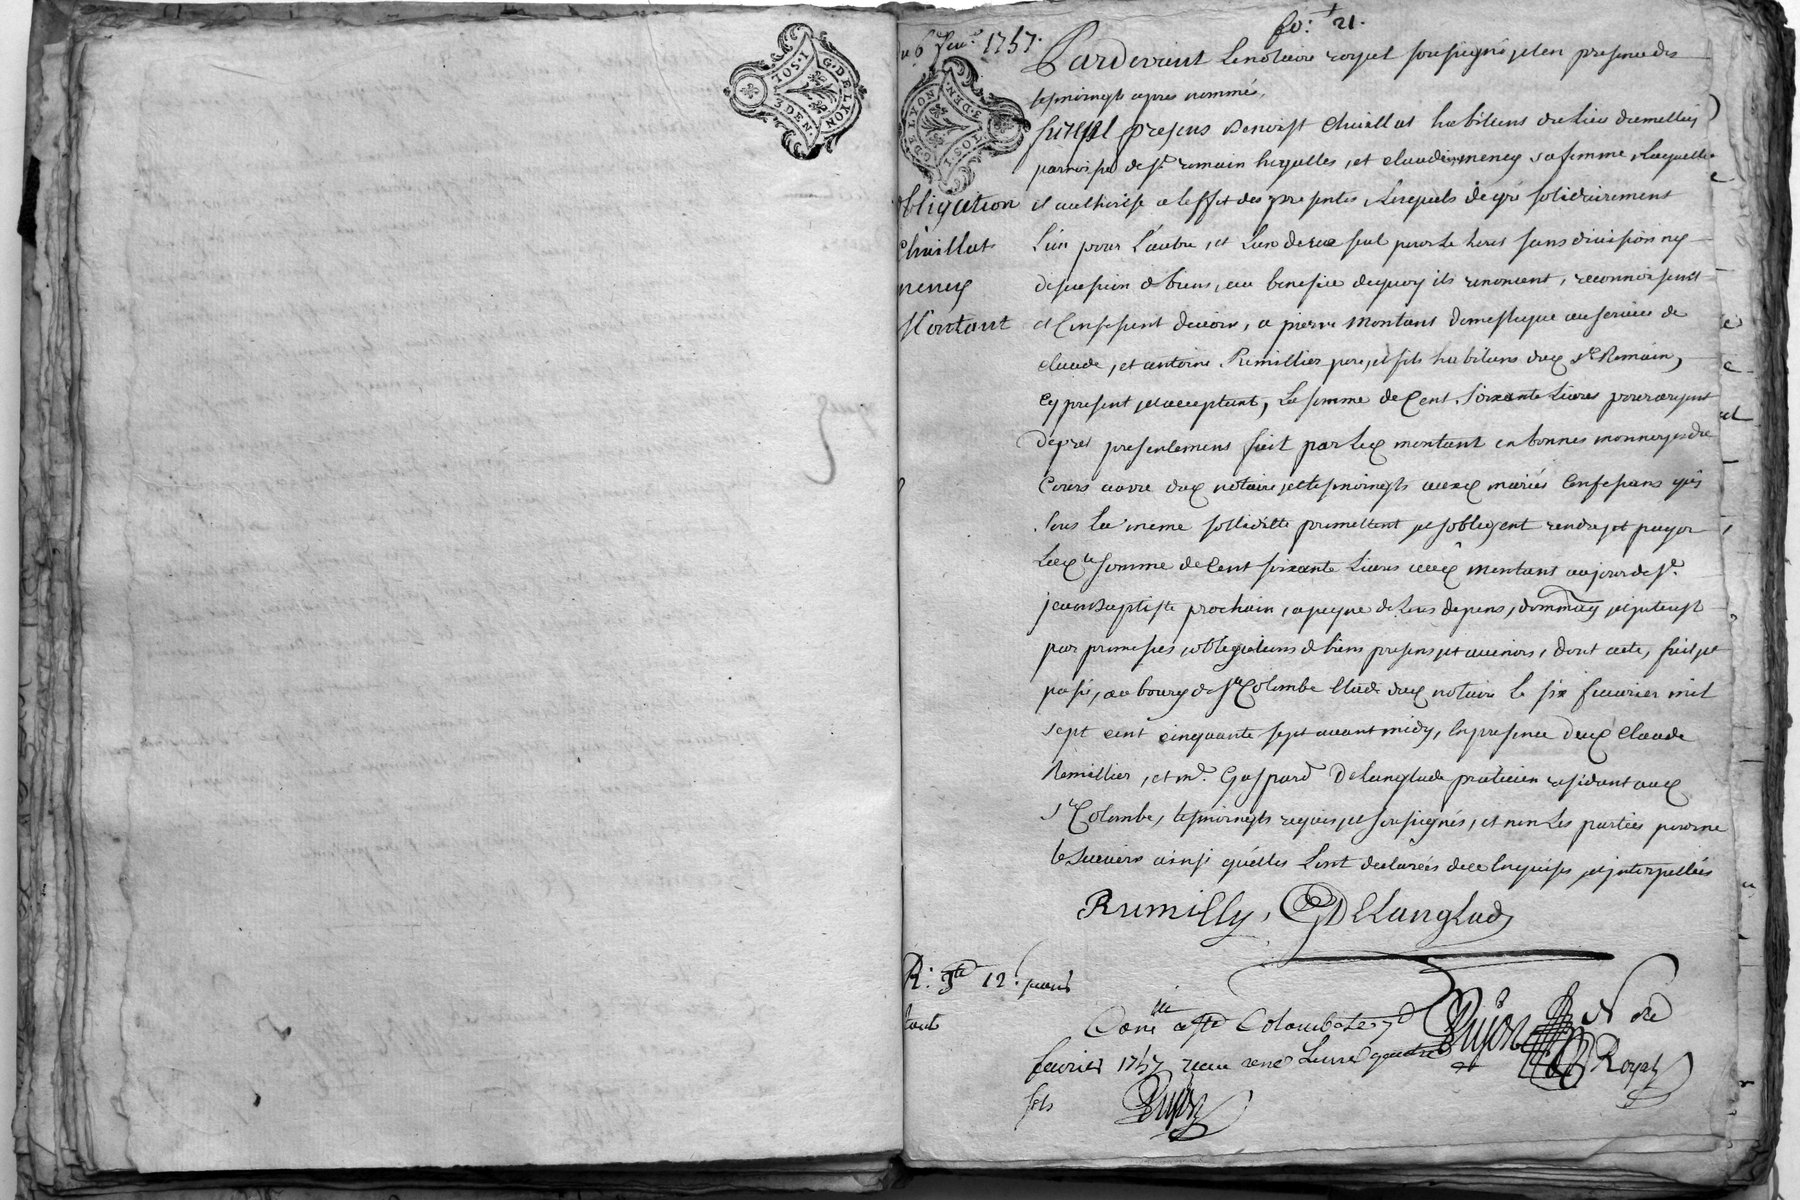 G. DE LYON
10S. 1
3 DEN.
fo: 21.
6 feu.r 1757.
G. DE LYON
10S. 1
3 DEN.
obligation
Chuillat
neney
Montant
Pardevant Le notaire royal soussigné et en presence des
tesmoingts apres nommés,
furent presens Benoist Chuillat habitant du lieu
parroisse de St. romain et claudine neney sa femme, Laquelle
il authorise a leffet des presentes, Lesquels de gré solidairement
L'un pour L'autre, et L'un deux seul pour Le tout sans division ny
discussion de biens, au benefice dequoy ils renoncent, reconnoissent
et Confessent devoir, a pierre Montant domestique au service de
claude, et antoine Remillier pere, et fils habitans dud St. Romain,
Cy present et acceptant, La somme de Cent soixante Livres pour argent
de pret presentement fait par led montant en bonnes monnoyes de
Cours a vue dud notaire et tesmoingts auxd mariés Confessans qui
sous La meme solliditte promettent et sobligent rendre et payer
Lad somme de Cent soixante Livres aud montant au jour de St.
jean Baptiste prochain, a peyne de tous depens, dommages et interest
par promesses, obligations de biens presens et avenirs, dont acte, fait et
passé, au bourg de Ste Colombe Etude dud notaire le six feuvrier mil
sept cent cinquante sept avant midy, En presence dud Claude
Remillier, et mr. Gaspard Delanglade praticien residant aud
Ste Colombe, tesmoingts requis et soussignés, et non Les parties pour ne
le scavoir ainsi qu'elles L'ont declarées de ce Enquises et interpellées
Rumilly, GDeLanglade
R: 3tt 12s pour
tout
Con.lé a Ste Colombe Le 7e
fevrier 1757 recu une Livre quatre
sols Bujon
Bujon Nore
Royal